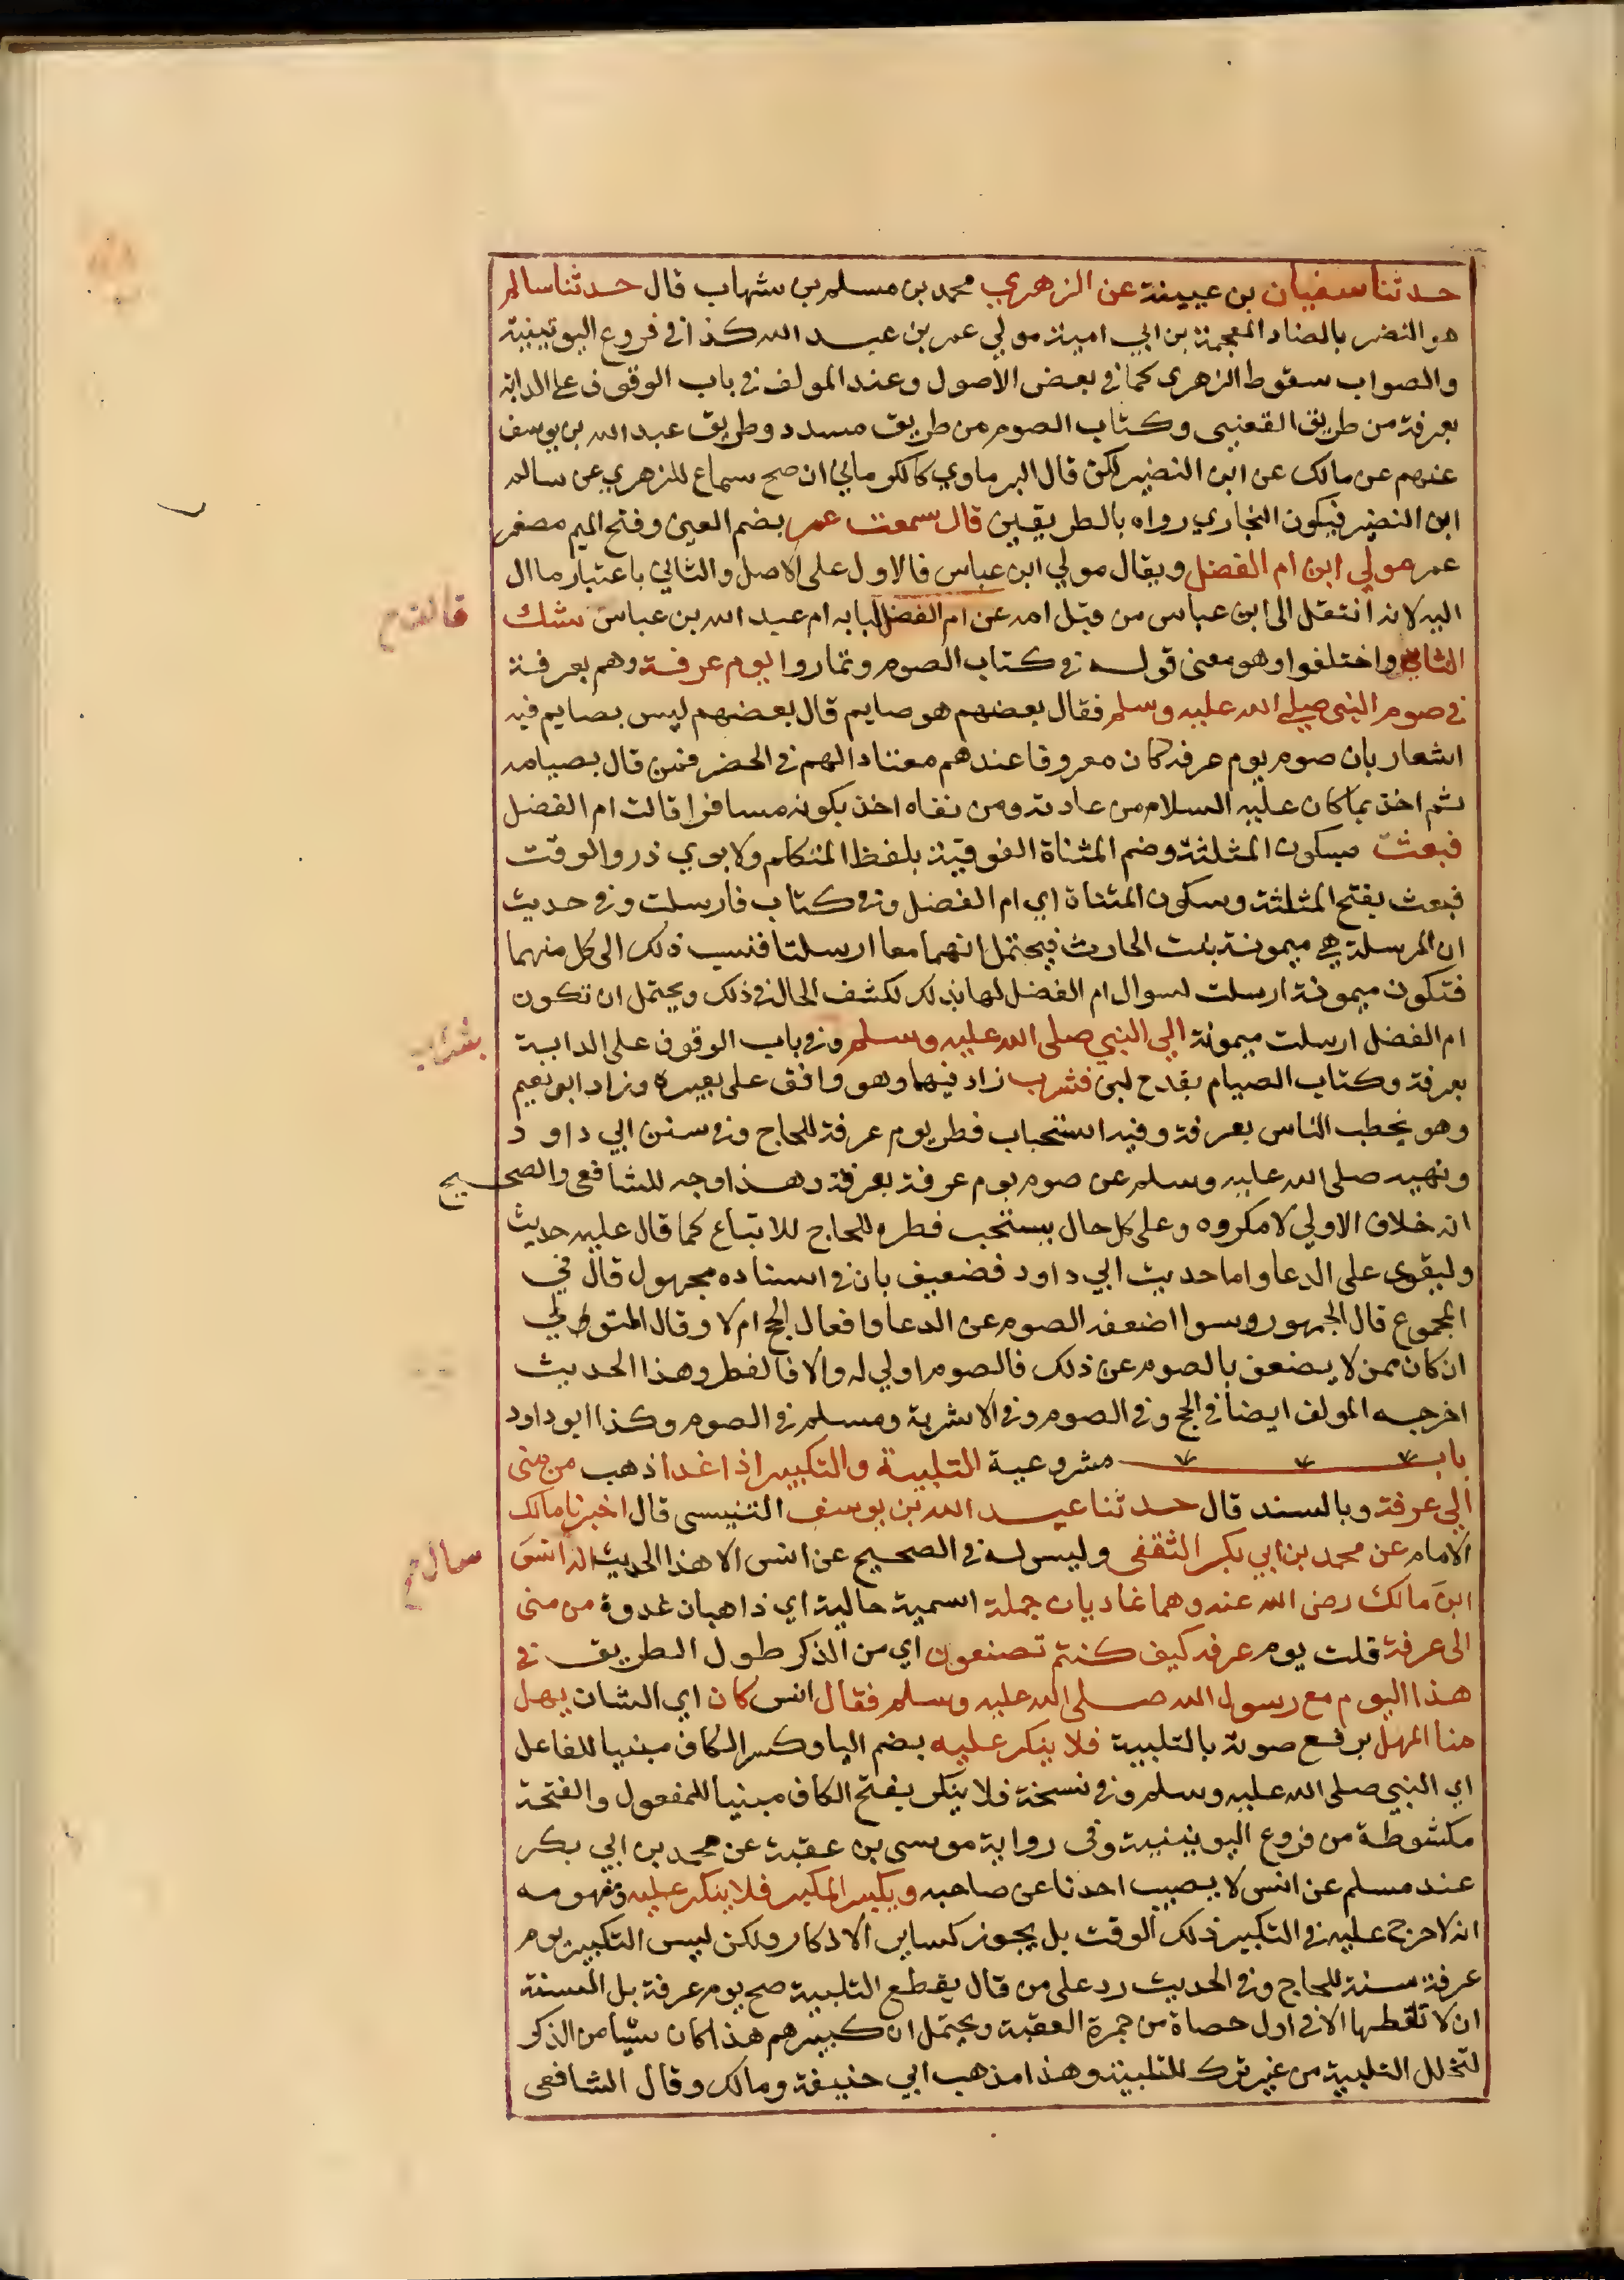 حدثنا سفيان بن عيينة عن الزهري محمد بن مسلم بن شهاب قال حدثنا سالم
هو النضر بالضاد المعجمة بن ابي امية مولي عمر بن عبيد الله كذا في فروع اليونينية
والصواب سقوط الزهري كما في بعض الاصول وعند المولف في باب الوقوف علي الدابة
بعرفة من طريق القعنبي وكتاب الصوم من طريق مسدد وطريق عبد الله بن يوسف
عنهم عن مالك عن ابن النضير لكن قال البرماوي كالكرماني ان صح سماع للزهري عن سالم
ابن النضير فيكون البخاري رواه بالطريقين قال سمعت عمر بضم العين وفتح الميم مصغر
عمر مولي ابن ام الفضل ويقال مولي ابن عباس فالاول على الاصل والثاني باعتبار ما ال
اليه لانه انتقل الى ابن عباس من قبل امه عن ام الفضل لبابه ام عبد الله بن عباس شك
الناس واختلفوا وهو معنى قوله في كتاب الصوم وتماروا يوم عرفة وهم بعرفة
في صوم النبي صلي الله عليه وسلم فقال بعضهم هو صايم قال بعضهم ليس بصايم فيه
اشعار بان صوم يوم عرفه كان معروفا عندهم معتادا لهم في الحضر فمن قال بصيامه
ثم اخذ بما كان عليه السلام من عادته ومن نفاه اخذ بكونه مسافرا قالت ام الفضل
فبعثت بسكون المثلثة وضم المثناة الفوقية بلفظ المتكلم ولابوي ذر والوقت
فبعث بفتح المثلثة وسكون المثناة اي ام الفضل وفي كتاب فارسلت وفي حديث
ان المرسلة هي ميمونة بنت الحارث فيحتمل انهما معا ارسلتا فنسب ذلك الى كل منهما
فتكون ميمونة ارسلت لسوال ام الفضل لها بذلك لكشف الحال في ذلك ويحتمل ان تكون
ام الفضل ارسلت ميمونة الي النبي صلى الله عليه وسلم وفي باب الوقوف على الدابة
بشراب
بعرفة وكتاب الصيام بقدح لبن فشرب زاد فيهما وهو واقف على بعيره وزاد ابو نعيم
وهو يخطب الناس بعرفة وفيه استحباب فطر يوم عرفة للحاج وفي سنن ابي داود
ونهيه صلى الله عليه وسلم عن صوم يوم عرفة بعرفة وهذا وجه للشافعي والصحيح
انه خلاف الاولي لا مكروه وعلى كل حال يستحب فطره للحاج للاتباع كما قال عليه حديث
وليقوى على الدعا واما حديث ابي داود فضعيف بان في اسناده مجهول قال في
المجموع قال الجمهور وسوا اضعفه الصوم عن الدعا وافعال الحج ام لا وقال المتولي
ان كان ممن لا يضعف بالصوم عن ذلك فالصوم اولي له والا فالفطر وهذا الحديث
اخرجه المولف ايضا في الحج وفي الصوم وفي الاشربة ومسلم في الصوم وكذا ابو داود
باب مشروعية التلبية والتكبير اذا غدا ذهب من منى
الي عرفة وبالسند قال حدثنا عبد الله بن يوسف التنيسي قال اخبرنا مالك
الامام عن محمد بن ابي بكر الثقفي وليس له في الصحيح عن انس الا هذا الحديث انه سال انس
ابن مالك رضي الله عنه وهما غاديان جملة اسمية حالية اي ذاهبان غدوة من منى
الى عرفة قلت يوم عرفه كيف كنتم تصنعون اي من الذكر طول الطريق في
هذا اليوم مع رسول الله صلى الله عليه وسلم فقال انس كان اي الشان يهل
منا المهل يرفع صوته بالتلبية فلا ينكر عليه بضم اليا وكسر الكاف مبنيا للفاعل
اي النبي صلى الله عليه وسلم وفي نسخة فلا ينكر بفتح الكاف مبنيا للمفعول والفتحة
مكشوطة من فروع اليونينية وفي رواية موسى بن عقبة عن محمد بن ابي بكر
عند مسلم عن انس لا يعيب احدنا عن صاحبه ويكبر المكبر فلا ينكر عليه ومفهومه
انه لا حرج عليه في التكبير ذلك الوقت بل يجوز كساير الاذكار ولكن ليس التكبير يوم
عرفة سنة للحاج وفي الحديث رد على من قال يقطع التلبية صبح يوم عرفة بل السنة
ان لا تقطعها الا في اول حصاة من جمرة العقبة ويحتمل ان كبيرهم هذا كان شيا من الذكر
لتخلل التلبية من غير ترك للتلبية وهذا مذهب ابي حنيفة ومالك وقال الشافعي